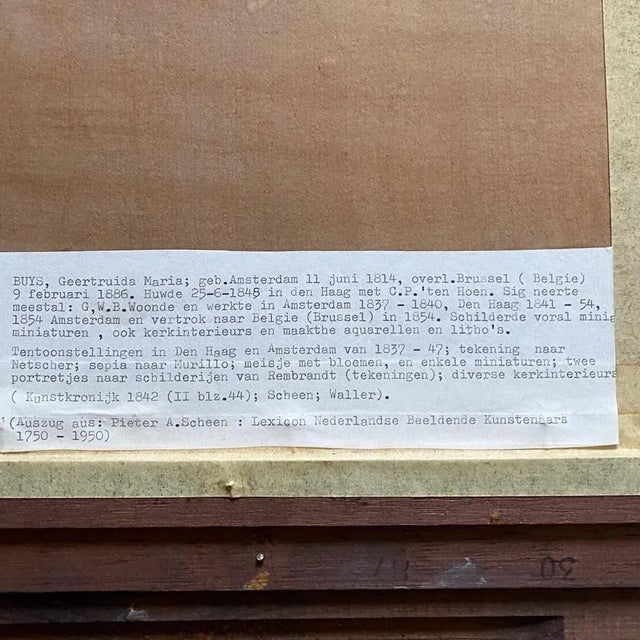 BUYS, Geertruida Maria; geb.Amsterdam 11 juni 1814, overl.Brussel ( Belgie)
9 februari 1886. Huwde 25-6-1845 in den Haag met C.P.'ten Hoen. Sig neerte
meestal: G,W.B.Woonde en werkte in Amsterdam 1837 - 1840, Den Haag 1841 - 54,
1854 Amsterdam en vertrok naar Belgie (Brussel) in 1854. Schilderde voral minig
miniaturen , ook kerkinterieurs en maakthe aquarellen en litho's.
Tentoonstellingen in Den Haag en Amsterdam van 1837 - 47; tekening naar
Netscher; sepia naar Murillo; meisje met bloemen, en enkele miniaturen; twee
portretjes naar schilderijen van Rembrandt (tekeningen); diverse kerkinterieurs
( Kunstkronijk 1842 (II blz.44); Scheen; Waller).
(Auszug aus: Pieter A.Scheen : Lexicon Nederlandse Beeldende Kunstenaars
1750 - 1950)
30